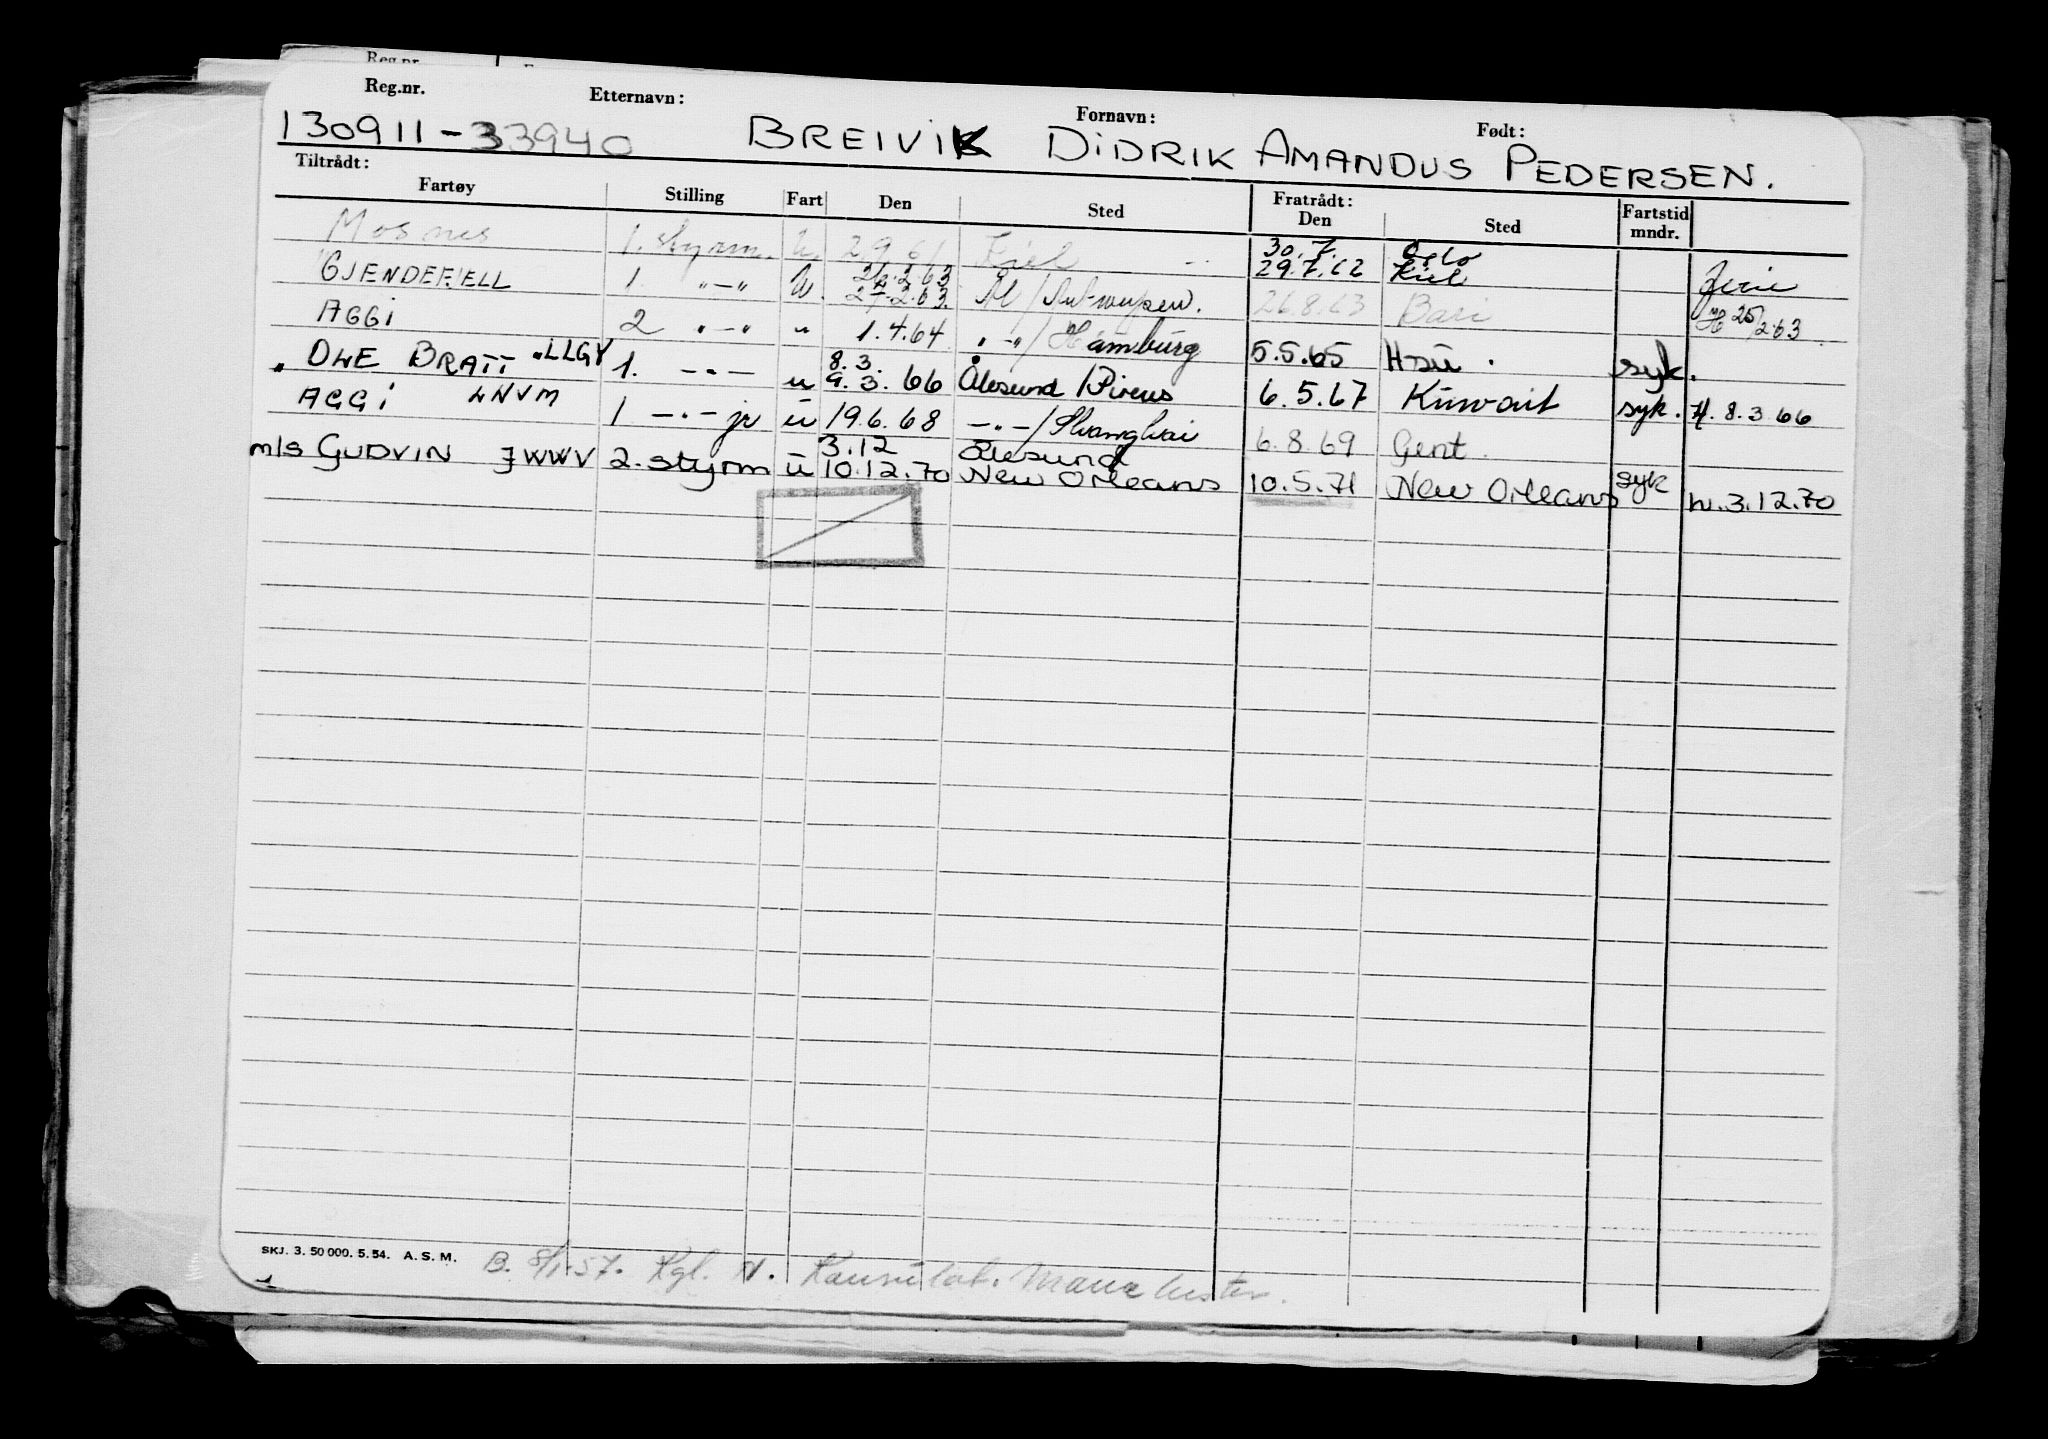 Reg.nr.
Reg.nr. Etternavn: Fornavn: Født:
130911-33940 BREIVIK DIDRIK AMANDUS PEDERSEN.
Tiltrådt: Fratrådt:
Fartøy Stilling Fart Den Sted Den Sted Fartstid mndr.
30.7. Oslo
Mosnes 1. styrm. u. 2.9.61 Kiel 29.7.62 Kiel Ferie
26.2.63
GJENDEFJELL 1. "-" u. 27.2.63. Ål/Antwerpen. 26.8.63 Bari H 25/2.63
AGGI 2 "-" " 1.4.64 "-"/Hamburg 5.5.65 Hsu. syk.
8.3.
" OLE BRATT "LLGY 1. -"- u 9.3.66 Ålesund/Pireus 6.5.67 Kuwait syk. H. 8.3.66
AGGI LNVM 1 -"- jr u 19.6.68 -"-/Shanghai 6.8.69 Gent.
3.12 Ålesund
m/s GUDVIN JWWV 2. styrm u 10.12.70 New Orleans 10.5.71 New Orleans syk h. 3.12.70
SKJ. 3. 50 000. 5. 54. A. S. M. B. 8/1.57. Kgl. N. Konsulat. Manchester.